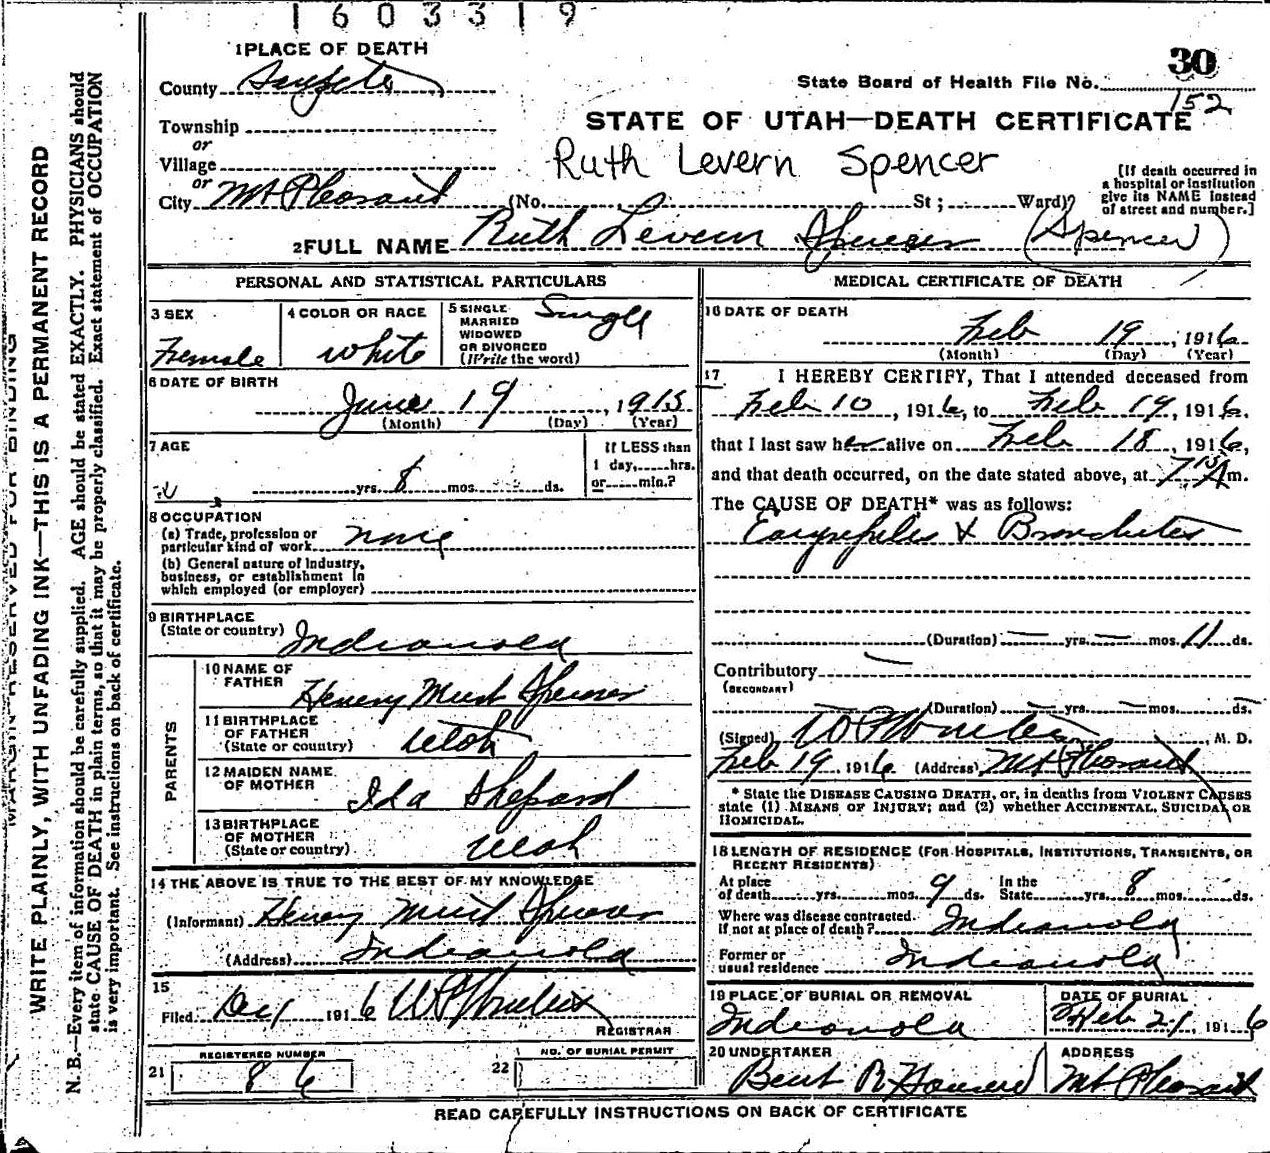 1603319
1 PLACE OF DEATH
30
County Sanpete
State Board of Health File No.
152
Township
STATE OF UTAH—DEATH CERTIFICATE
or
Village
Ruth Levern Spencer
or
[If death occurred in
a hospital or institution
give its NAME instead
of street and number.]
City Mt Pleasant (No. St; Ward)
2 FULL NAME Ruth Levern Spencer (Spencer)
PERSONAL AND STATISTICAL PARTICULARS
3 SEX
Female
4 COLOR OR RACE
white
5 SINGLE
MARRIED
WIDOWED
OR DIVORCED
(Write the word)
Single
6 DATE OF BIRTH
June 19, 1915
(Month) (Day) (Year)
7 AGE
yrs. 8 mos. ds.
If LESS than
1 day, hrs.
or min.?
8 OCCUPATION
(a) Trade, profession or
particular kind of work none
(b) General nature of Industry,
business, or establishment in
which employed (or employer)
9 BIRTHPLACE
(State or country) Indianola
PARENTS
10 NAME OF
FATHER
Henery Spencer
11 BIRTHPLACE
OF FATHER
(State or country) Utah
12 MAIDEN NAME
OF MOTHER
Ida Shepard
13 BIRTHPLACE
OF MOTHER
(State or country) Utah
14 THE ABOVE IS TRUE TO THE BEST OF MY KNOWLEDGE
(Informant) Henery Spencer
(Address) Indianola
15
Filed 1916
REGISTRAR
REGISTERED NUMBER
21 86
NO. OF BURIAL PERMIT
22
MEDICAL CERTIFICATE OF DEATH
16 DATE OF DEATH
Feb 19, 1916
(Month) (Day) (Year)
17 I HEREBY CERTIFY, That I attended deceased from
Feb 10, 1916, to Feb 19, 1916.
that I last saw her alive on Feb 18, 1916,
and that death occurred, on the date stated above, at 7 15 A m.
The CAUSE OF DEATH* was as follows:
& Bronchites
(Duration) — yrs. — mos. 11 ds.
Contributory —
(SECONDARY)
(Duration) — yrs. — mos. — ds.
(Signed) , M. D.
Feb 19 1916 (Address) Mt Pleasant
* State the DISEASE CAUSING DEATH, or, in deaths from VIOLENT CAUSES
state (1) MEANS OF INJURY; and (2) whether ACCIDENTAL, SUICIDAL OR
HOMICIDAL.
18 LENGTH OF RESIDENCE (FOR HOSPITALS, INSTITUTIONS, TRANSIENTS, OR
RECENT RESIDENTS)
At place
of death yrs. mos. 9 ds. In the
State yrs. 8 mos. ds.
Where was disease contracted.
If not at place of death? Indianola
Former or
usual residence Indianola
19 PLACE OF BURIAL OR REMOVAL
Indianola
DATE OF BURIAL
Feb 21, 1916
20 UNDERTAKER
Bent R
ADDRESS
Mt Pleasant
READ CAREFULLY INSTRUCTIONS ON BACK OF CERTIFICATE
MARGIN RESERVED FOR BINDING
WRITE PLAINLY, WITH UNFADING INK—THIS IS A PERMANENT RECORD
N. B.—Every item of information should be carefully supplied. AGE should be stated EXACTLY. PHYSICIANS should
state CAUSE OF DEATH in plain terms, so that it may be properly classified. Exact statement of OCCUPATION
is very important. See instructions on back of certificate.